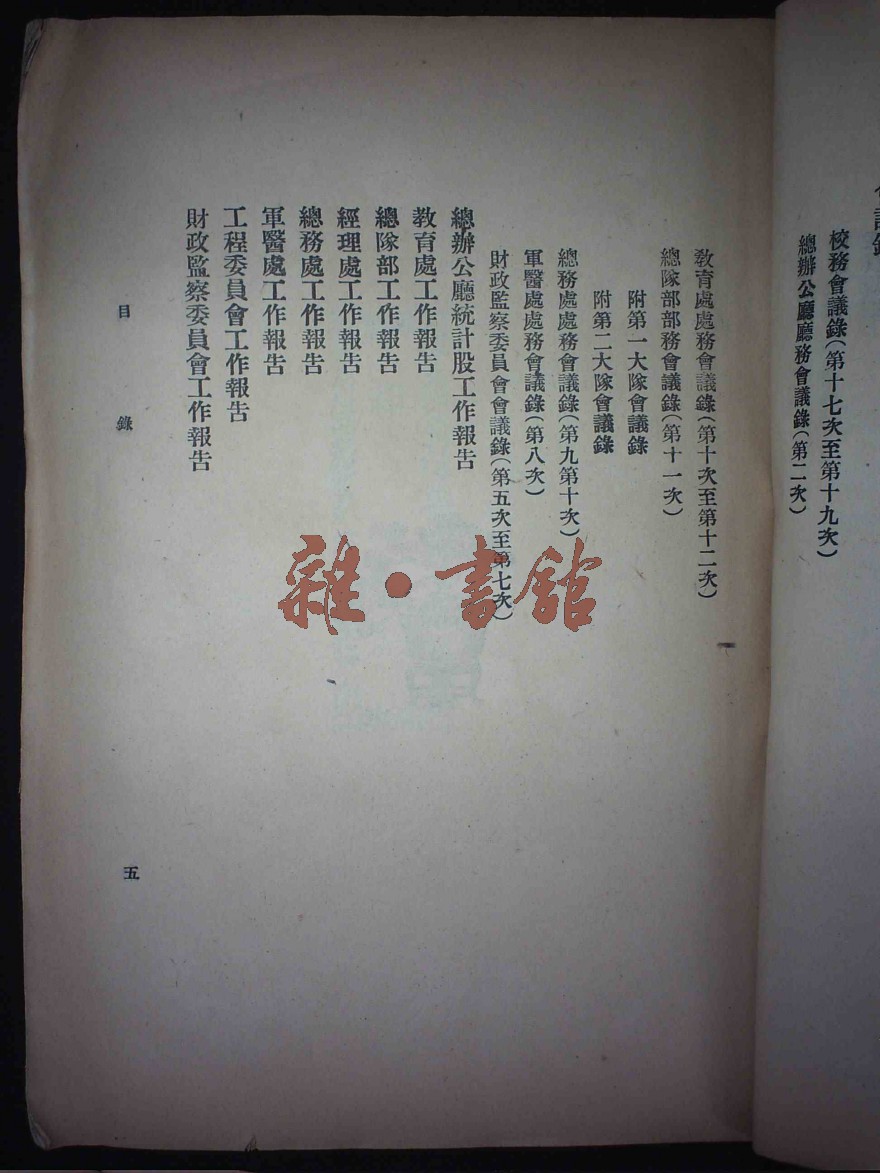 會議錄
校務會議錄(第十七次至第十九次)
總辦公廳廳務會議錄(第二次)
教育處處務會議錄(第十次至第十二次)
總隊部部務會議錄(第十一次)
附第一大隊會議錄
附第二大隊會議錄
總務處處務會議錄(第九第十次)
軍醫處處務會議錄(第八次)
財政監察委員會會議錄(第五次至第七次)
總辦公廳統計股工作報告
教育處工作報告
總隊部工作報告
經理處工作報告
總務處工作報告
軍醫處工作報告
工程委員會工作報告
財政監察委員會工作報告
目錄
五
雜·書館